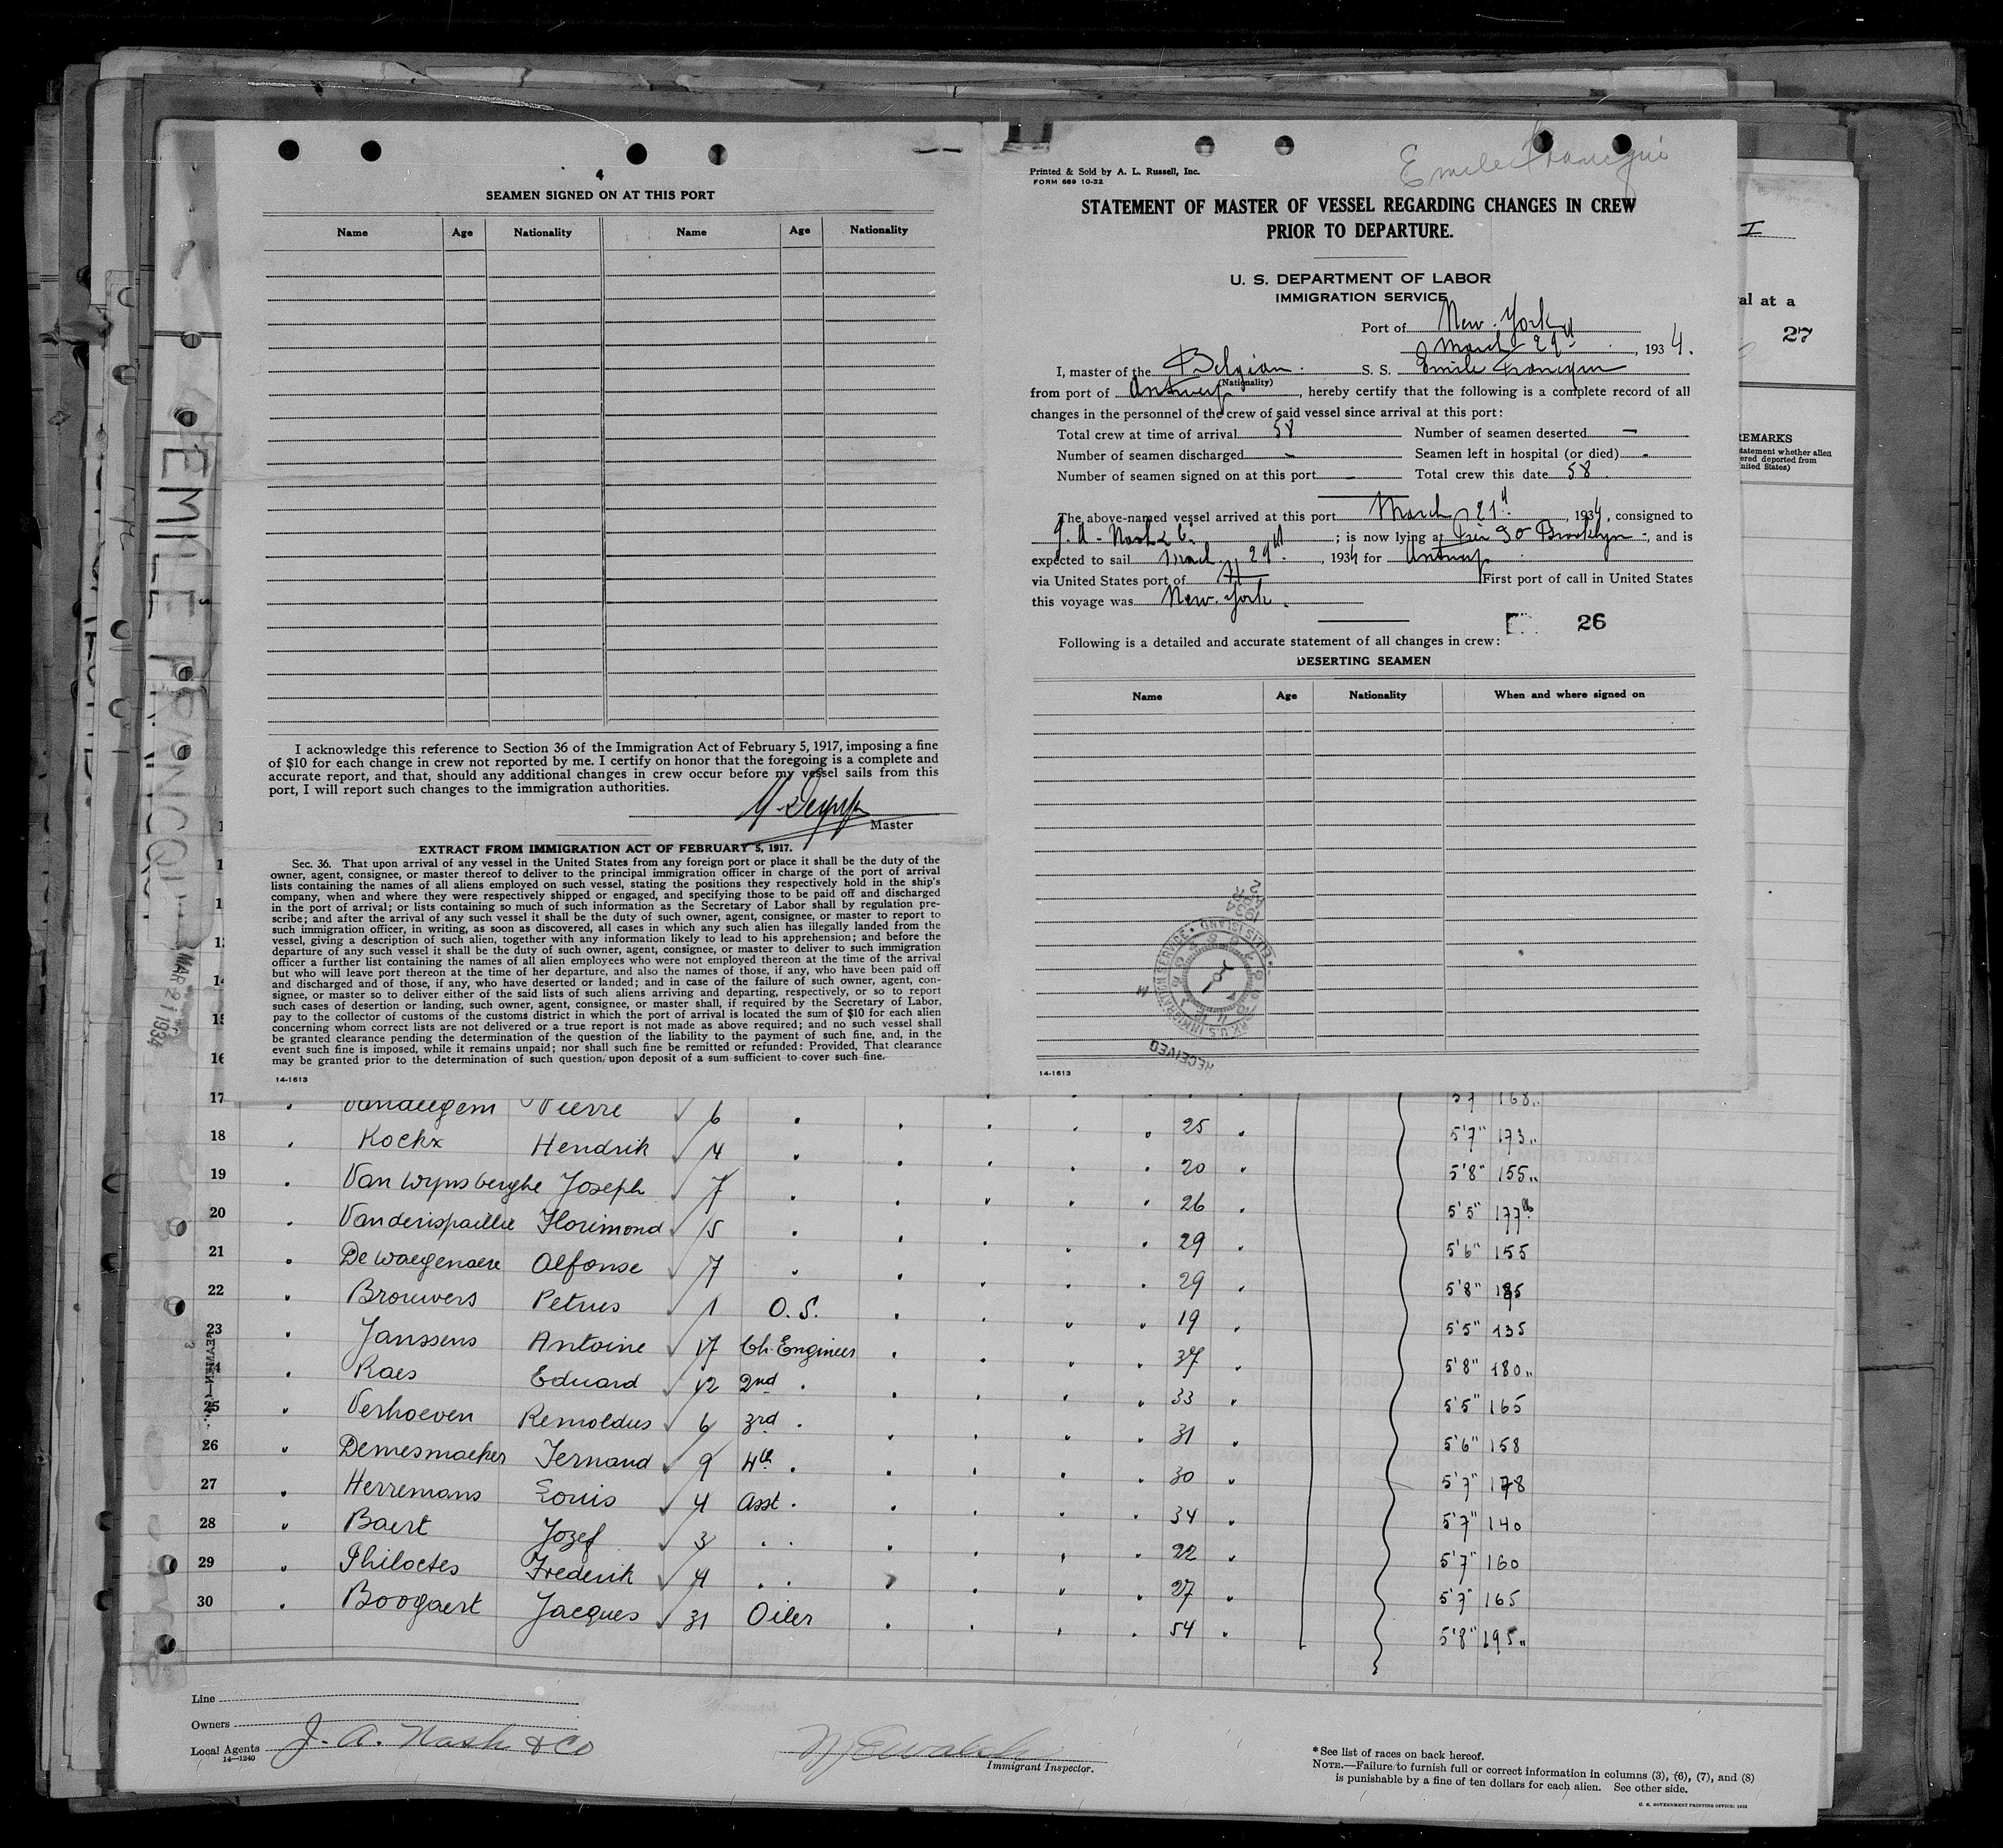 4
SEAMEN SIGNED ON AT THIS PORT
Name Age Nationality Name Age Nationality
I acknowledge this reference to Section 36 of the Immigration Act of February 5, 1917, imposing a fine
of $10 for each change in crew not reported by me. I certify on honor that the foregoing is a complete and
accurate report, and that, should any additional changes in crew occur before my vessel sails from this
port, I will report such changes to the immigration authorities.
Master
EXTRACT FROM IMMIGRATION ACT OF FEBRUARY 5, 1917.
Sec. 36. That upon arrival of any vessel in the United States from any foreign port or place it shall be the duty of the
owner, agent, consignee, or master thereof to deliver to the principal immigration officer in charge of the port of arrival
lists containing the names of all aliens employed on such vessel, stating the positions they respectively hold in the ship's
company, when and where they were respectively shipped or engaged, and specifying those to be paid off and discharged
in the port of arrival; or lists containing so much of such information as the Secretary of Labor shall by regulation pre-
scribe; and after the arrival of any such vessel it shall be the duty of such owner, agent, consignee, or master to report to
such immigration officer, in writing, as soon as discovered, all cases in which any such alien has illegally landed from the
vessel, giving a description of such alien, together with any information likely to lead to his apprehension; and before the
departure of any such vessel it shall be the duty of such owner, agent, consignee, or master to deliver to such immigration
officer a further list containing the names of all alien employees who were not employed thereon at the time of the arrival
but who will leave port thereon at the time of her departure, and also the names of those, if any, who have been paid off
and discharged and of those, if any, who have deserted or landed; and in case of the failure of such owner, agent, con-
signee, or master so to deliver either of the said lists of such aliens arriving and departing, respectively, or so to report
such cases of desertion or landing, such owner, agent, consignee, or master shall, if required by the Secretary of Labor,
pay to the collector of customs of the customs district in which the port of arrival is located the sum of $10 for each alien
concerning whom correct lists are not delivered or a true report is not made as above required; and no such vessel shall
be granted clearance pending the determination of the question of the liability to the payment of such fine, and, in the
event such fine is imposed, while it remains unpaid; nor shall such fine be remitted or refunded: Provided, That clearance
may be granted prior to the determination of such question upon deposit of a sum sufficient to cover such fine.
14-1613
Emile Francqui
Printed & Sold by A. L. Russell, Inc.
FORM 689 10-32
STATEMENT OF MASTER OF VESSEL REGARDING CHANGES IN CREW
PRIOR TO DEPARTURE.
U. S. DEPARTMENT OF LABOR
IMMIGRATION SERVICE
Port of New-York
March 29th, 1934.
I, master of the Belgian S. S. Emile Francqui
(Nationality)
from port of Antwerp, hereby certify that the following is a complete record of all
changes in the personnel of the crew of said vessel since arrival at this port:
Total crew at time of arrival 58 Number of seamen deserted –
Number of seamen discharged - Seamen left in hospital (or died) -
Number of seamen signed on at this port – Total crew this date 58
The above-named vessel arrived at this port March 21st, 1934, consigned to
J. A. Nash & Co; is now lying at Pier 30 Brooklyn, and is
expected to sail March 29th, 1934 for Antwerp
via United States port of First port of call in United States
this voyage was New-York.
26
Following is a detailed and accurate statement of all changes in crew:
DESERTING SEAMEN
Name Age Nationality When and where signed on
RECEIVED
14-1613
I
al at a
27
REMARKS
EMILE FRANCQUI
MAR 21 1934
17 Vandeegem Pierre 6 25 5'7 168
18 Kockx Hendrik 4 20 5'7" 173
19 Van Wynsberghe Joseph 7 26 5'8" 155
20 Vanderispaillie Florimond 5 29 5'5" 177 lb
21 De Waegenaere Alfonse 7 29 5'6" 155
22 Brouwers Petrus 1 O.S. 19 5'8" 185
23 Janssens Antoine 17 Ch. Engineer 37 5'5" 135
Raes Eduard 12 2nd 33 5'8" 180
Verhoeven Remoldus 6 3rd 31 5'5" 165
26 Demesmaeker Fernand 9 4th 30 5'6" 158
27 Herremans Louis 4 Asst. 34 5'7" 178
28 Baert Jozef 3 22 5'7" 140
29 Philoctes Frederik 4 27 5'7" 160
30 Boogaert Jacques 31 Oiler 54 5'7" 165
5'8" 195
Line
Owners
Local Agents J. A. Nash & Co
14—1240
Immigrant Inspector.
* See list of races on back hereof.
NOTE.—Failure to furnish full or correct information in columns (3), (6), (7), and (8)
is punishable by a fine of ten dollars for each alien. See other side.
U. S. GOVERNMENT PRINTING OFFICE: 1932